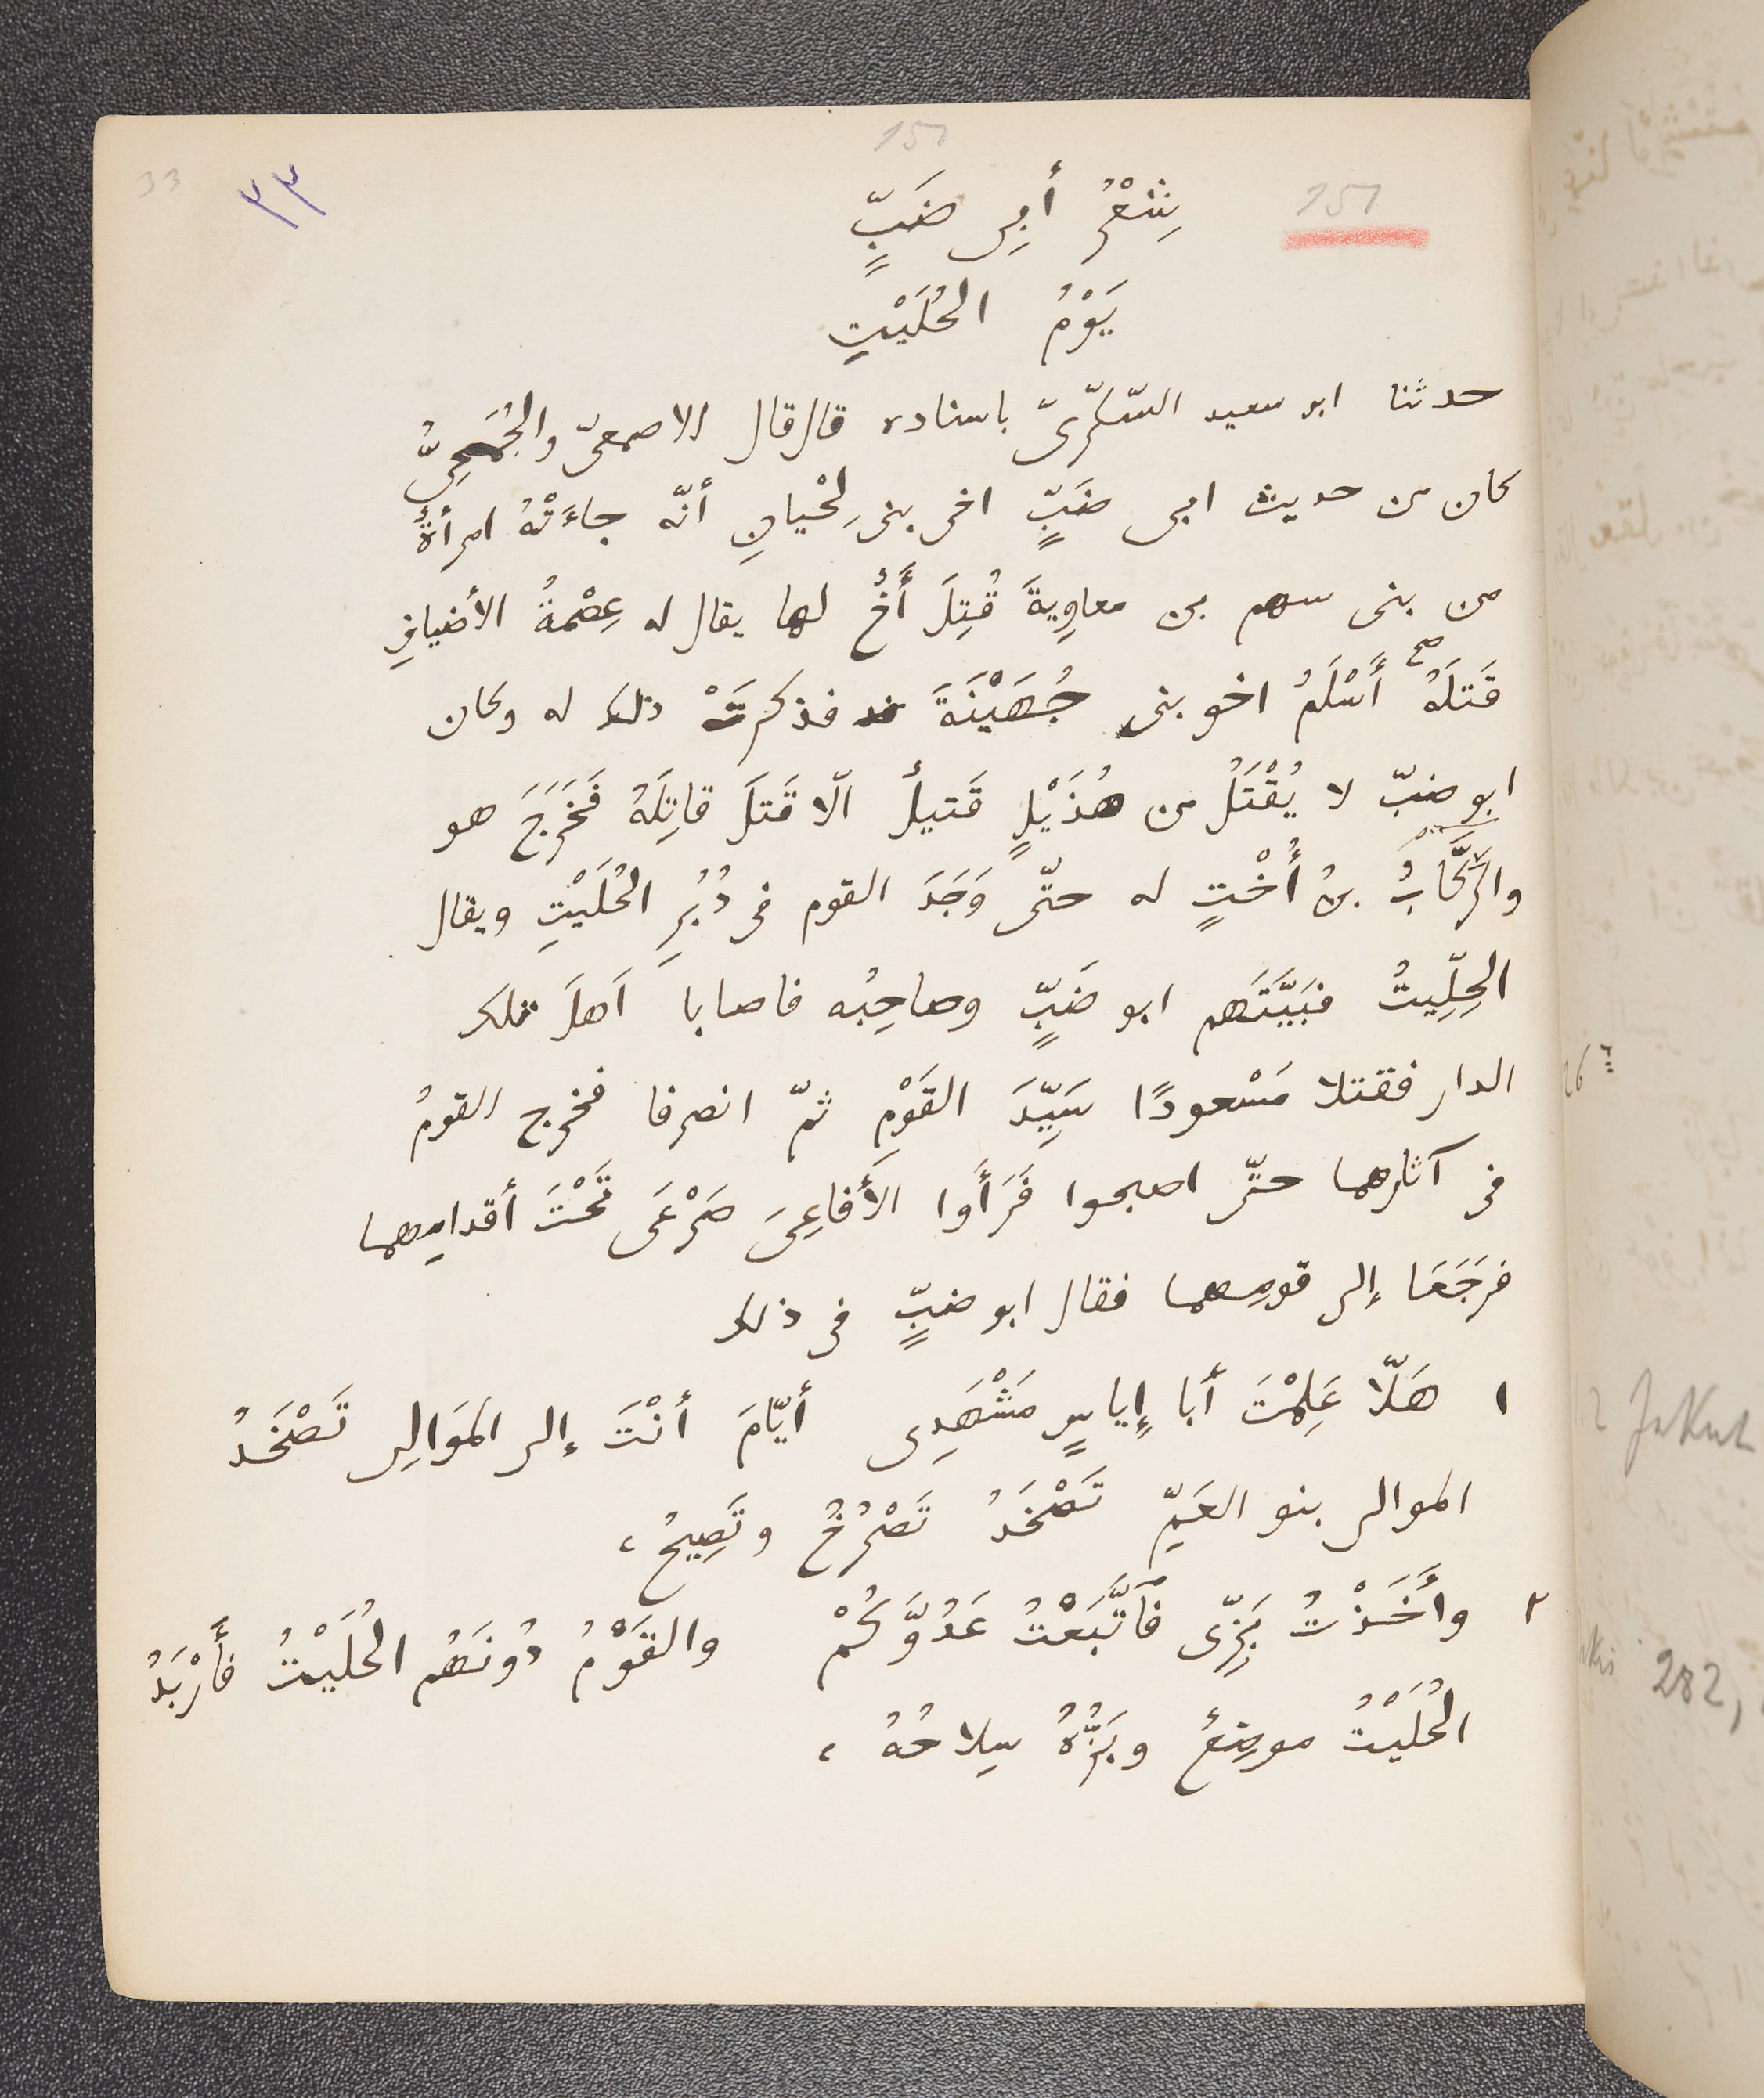 151
33
٣٣
151
شِعْرُ أَبِى ضَبٍّ
يَوْمُ الحُلَيْتِ
حدثنا ابو سعيد السّكرىّ باسناده قال قال الاصمعىّ والجُمَحِىُّ
كان من حديث ابى ضَبٍّ اخى بنى لِحْيانِ أنّه جاءَتْهُ امرأةٌ
من بنى سهم بن معاوِيةَ قُتِلَ أَخٌ لها يقال له عِصْمَةُ الأضيافِ
قَتَلَهُ صح أَسْلَمُ اخو بنى جُهَيْنَةَ فذكرتْ ذلك له وكان
ابو ضبّ لا يُقْتَلُ من هُذَيْلٍ قَتيلٌ الّا قَتَلَ قاتِلَهُ فَخَرَجَ هو
والرَّكّابُ بنُ أُخْتٍ له حتّى وَجَدَ القوم فى دُبُرِ الحُلَيْتِ ويقال
الحِلِّيتُ فبَيَّتَهم ابو ضَبٍّ وصاحِبُه فاصابا اَهلَ تلك
الدار فقتلا مَسْعودًا سَيِّدَ القَوْمِ ثمّ انصرفا فخرج القومُ
فى آثارهما حتّى اصبحوا فَرَأَوا الأَفاعِىَ صَرْعَى تَحْتَ أقدامِهما
فرجَعَا إلى قومِهما فقال ابو ضبٍّ فى ذلك
١ هَلّا عَلِمْتَ أبا إياسٍ مَشْهَدِى أيّامَ أنْتَ إلى المَوَالِى تَصْخَدُ
الموالى بنو العَمِّ تَصْخَدُ تَصْرُخُ وتَصِيحُ،
٢ وأَخَذْتُ بَزِّى فَٱتَّبَعْتُ عَدُوَّكُمْ والقَوْمُ دُونَهُم الحُلَيْتُ فأَرْبَدُ
الحُلَيْتُ موضِعٌ وبَزُّهُ سِلاحُهُ،
26
Jakut
282,